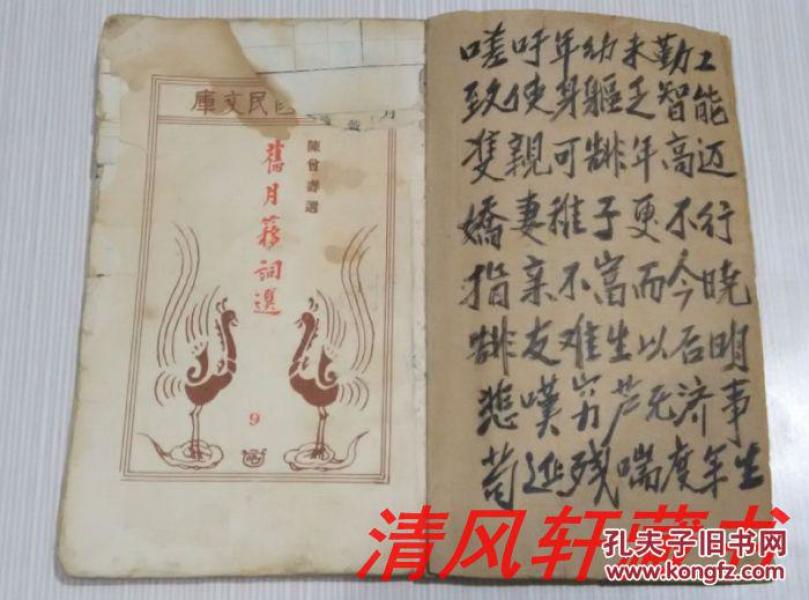 民文庫
陳曾壽選
舊月簃詞選
9
嗟吁年幼未勤工
致使身軀乏智能
隻親可年高迈
嬌妻稚子更不行
指亲不富而今晓
友难生以后明
悲嘆穷芦无济事
苟延残喘度年生
清风轩藏书
孔夫子旧书网
www.kongfz.com